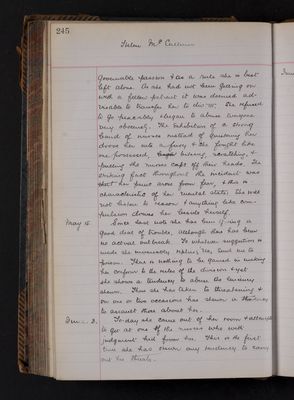 245
Helen Mc Callum
governable passion & as a rule she is best
left alone. As she had not been getting on
with a fellow patient it was deemed ad-
visable to transfer her to div. III. She refused
to go peaceably & began to abuse everyone
very obscenely. The exhibition of a strong
band of nurses instead of quietening her
drove her into a fury & she fought like
one possessed, biting, scratching, &
pulling the nurses caps off their heads. The
striking fact throughout the incident was
that her panic arose from fear, & this is
characteristic of her mental state. She will
not listen to reason & anything like com-
pulsion drives her beside herself.
May 15. Since last note she has been giving a
good deal of trouble, although there has been
no actual outbreak. To whatever suggestion is
made she invariably replies, "No, send me to
prison. There is nothing to be gained in making
her conform to the rules of the division & yet
she shows a tendency to abuse the leniency
shown. Thus she has taken to threatening &
on one or two occasions has shown a tendency
to assault those about her.
June 3. To-day she came out of her room & attempted
to get at one of the nurses who with
judgment hid from her. This is the first
time she has shown any tendency to carry
out her threats.
June